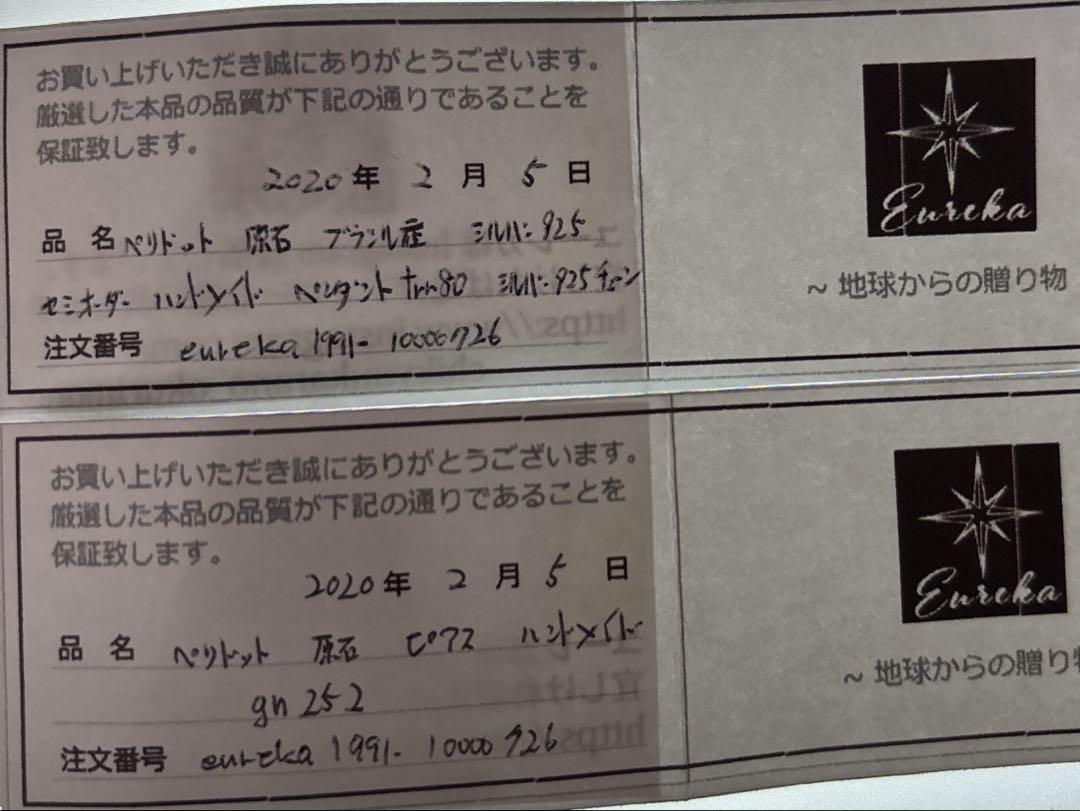 お買い上げいただき誠にありがとうございます。
厳選した本品の品質が下記の通りであることを
保証致します。
2020年 2月 5日
品名 ペリドット 原石 ブラジル産 シルバー925
セミオーダー ハンドメイド ペンダント trn80 シルバー925チェーン
注文番号 eureka1991-10000726
Eureka
~ 地球からの贈り物
お買い上げいただき誠にありがとうございます。
厳選した本品の品質が下記の通りであることを
保証致します。
2020年 2月 5日
品名 ペリドット 原石 ピアス ハンドメイド
gn252
注文番号 eureka1991-10000726
Eureka
~ 地球からの贈り物